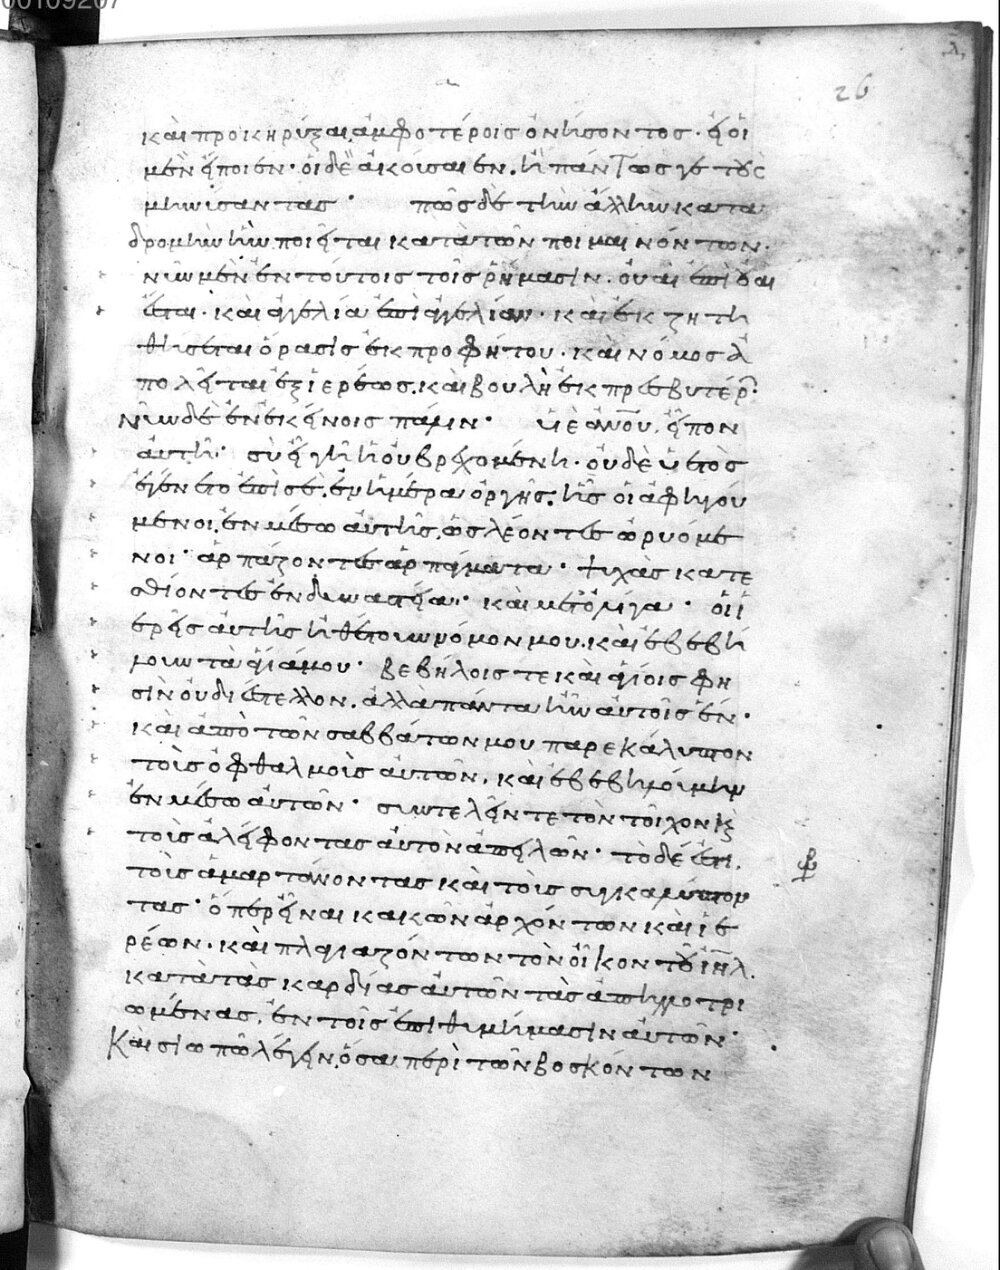 00109207
26
καὶ προικηρύξαι ἀμφοτέροις ὀνήσοντος· εἰ οἱ
μὲν εἶποιεν· οἱ δὲ ἀκούσαιεν. ἢ πάντως γε τοὺς
μηνίσαντας· πῶς δὲ τὴν ἄλλην κατα
δρομὴν ἣν ποιεῖται κατὰ τῶν ποιμαινόντων·
νῦν μὲν ἐν τούτοις τοῖς ῥήμασιν. οὐαὶ ἐπὶ οὐαὶ
ἔσται· καὶ ἀγγελία ἐπὶ ἀγγελίαν· καὶ ἐκζητη
θήσεται ὅρασις ἐκ προφήτου· καὶ νόμος ἀ
πολεῖται ἐξ ἱερέως. καὶ βουλὴ ἐκ πρεσβυτέρ
νῦν δὲ ἐν ἐκείνοις πάλιν· υἱὲ ἀνου, εἶπον
αὐτῆ· σὺ εἶ γῆ ἡ οὐ βρεχομένη· οὐδὲ ὑετὸς
ἐγένετο ἐπὶ σὲ. ἐν ἡμέρα ὀργῆς. ἧς οἱ ἀφηγού
μενοι ἐν μέσω αὐτῆς, ὡς λέοντες ὠρυόμε
νοι· ἁρπάζοντες ἁρπάγματα· ψυχὰς κατε
σθίοντες ἐν δυναστεία· καὶ μεθόμγα· οἱ ἱ
ερεῖς αὐτῆς ἠθέτουν νόμον μου. καὶ ἐβεβή
λουν τὰ ἅγιά μου· βεβήλοις τε καὶ ἁγίοις φη
σὶν οὐ διέστελλον. ἀλλὰ πάντα ἦν αὐτοῖς ἕν·
καὶ ἀπὸ τῶν σαββάτων μου παρεκάλυπτον
τοὺς ὀφθαλμοὺς αὐτῶν, καὶ ἐβεβηλούμην
ἐν μέσω αὐτῶν· συντελεῖν τε τὸν τοῖχον κ
τοὺς ἀλείφοντας αὐτὸν ἀπειλῶν· τὸ δέ ἐστι,
τοὺς ἁμαρτάνοντας καὶ τοὺς συγκαλύπτον
τας· ὅπερ εἶναι κακῶν ἀρχόντων καὶ ἱε
ρέων· καὶ πλαγιαζόντων τὸν οἶκον τοῦ ιηλ.
κατὰ τὰς καρδίας αὐτῶν τὰς ἀπηλλοτρι
ωμένας, ἐν τοῖς ἐπιθυμήμασιν αὐτῶν·
Καὶ σιωπῶ λέγειν, ὅσα περὶ τῶν βοσκόντων